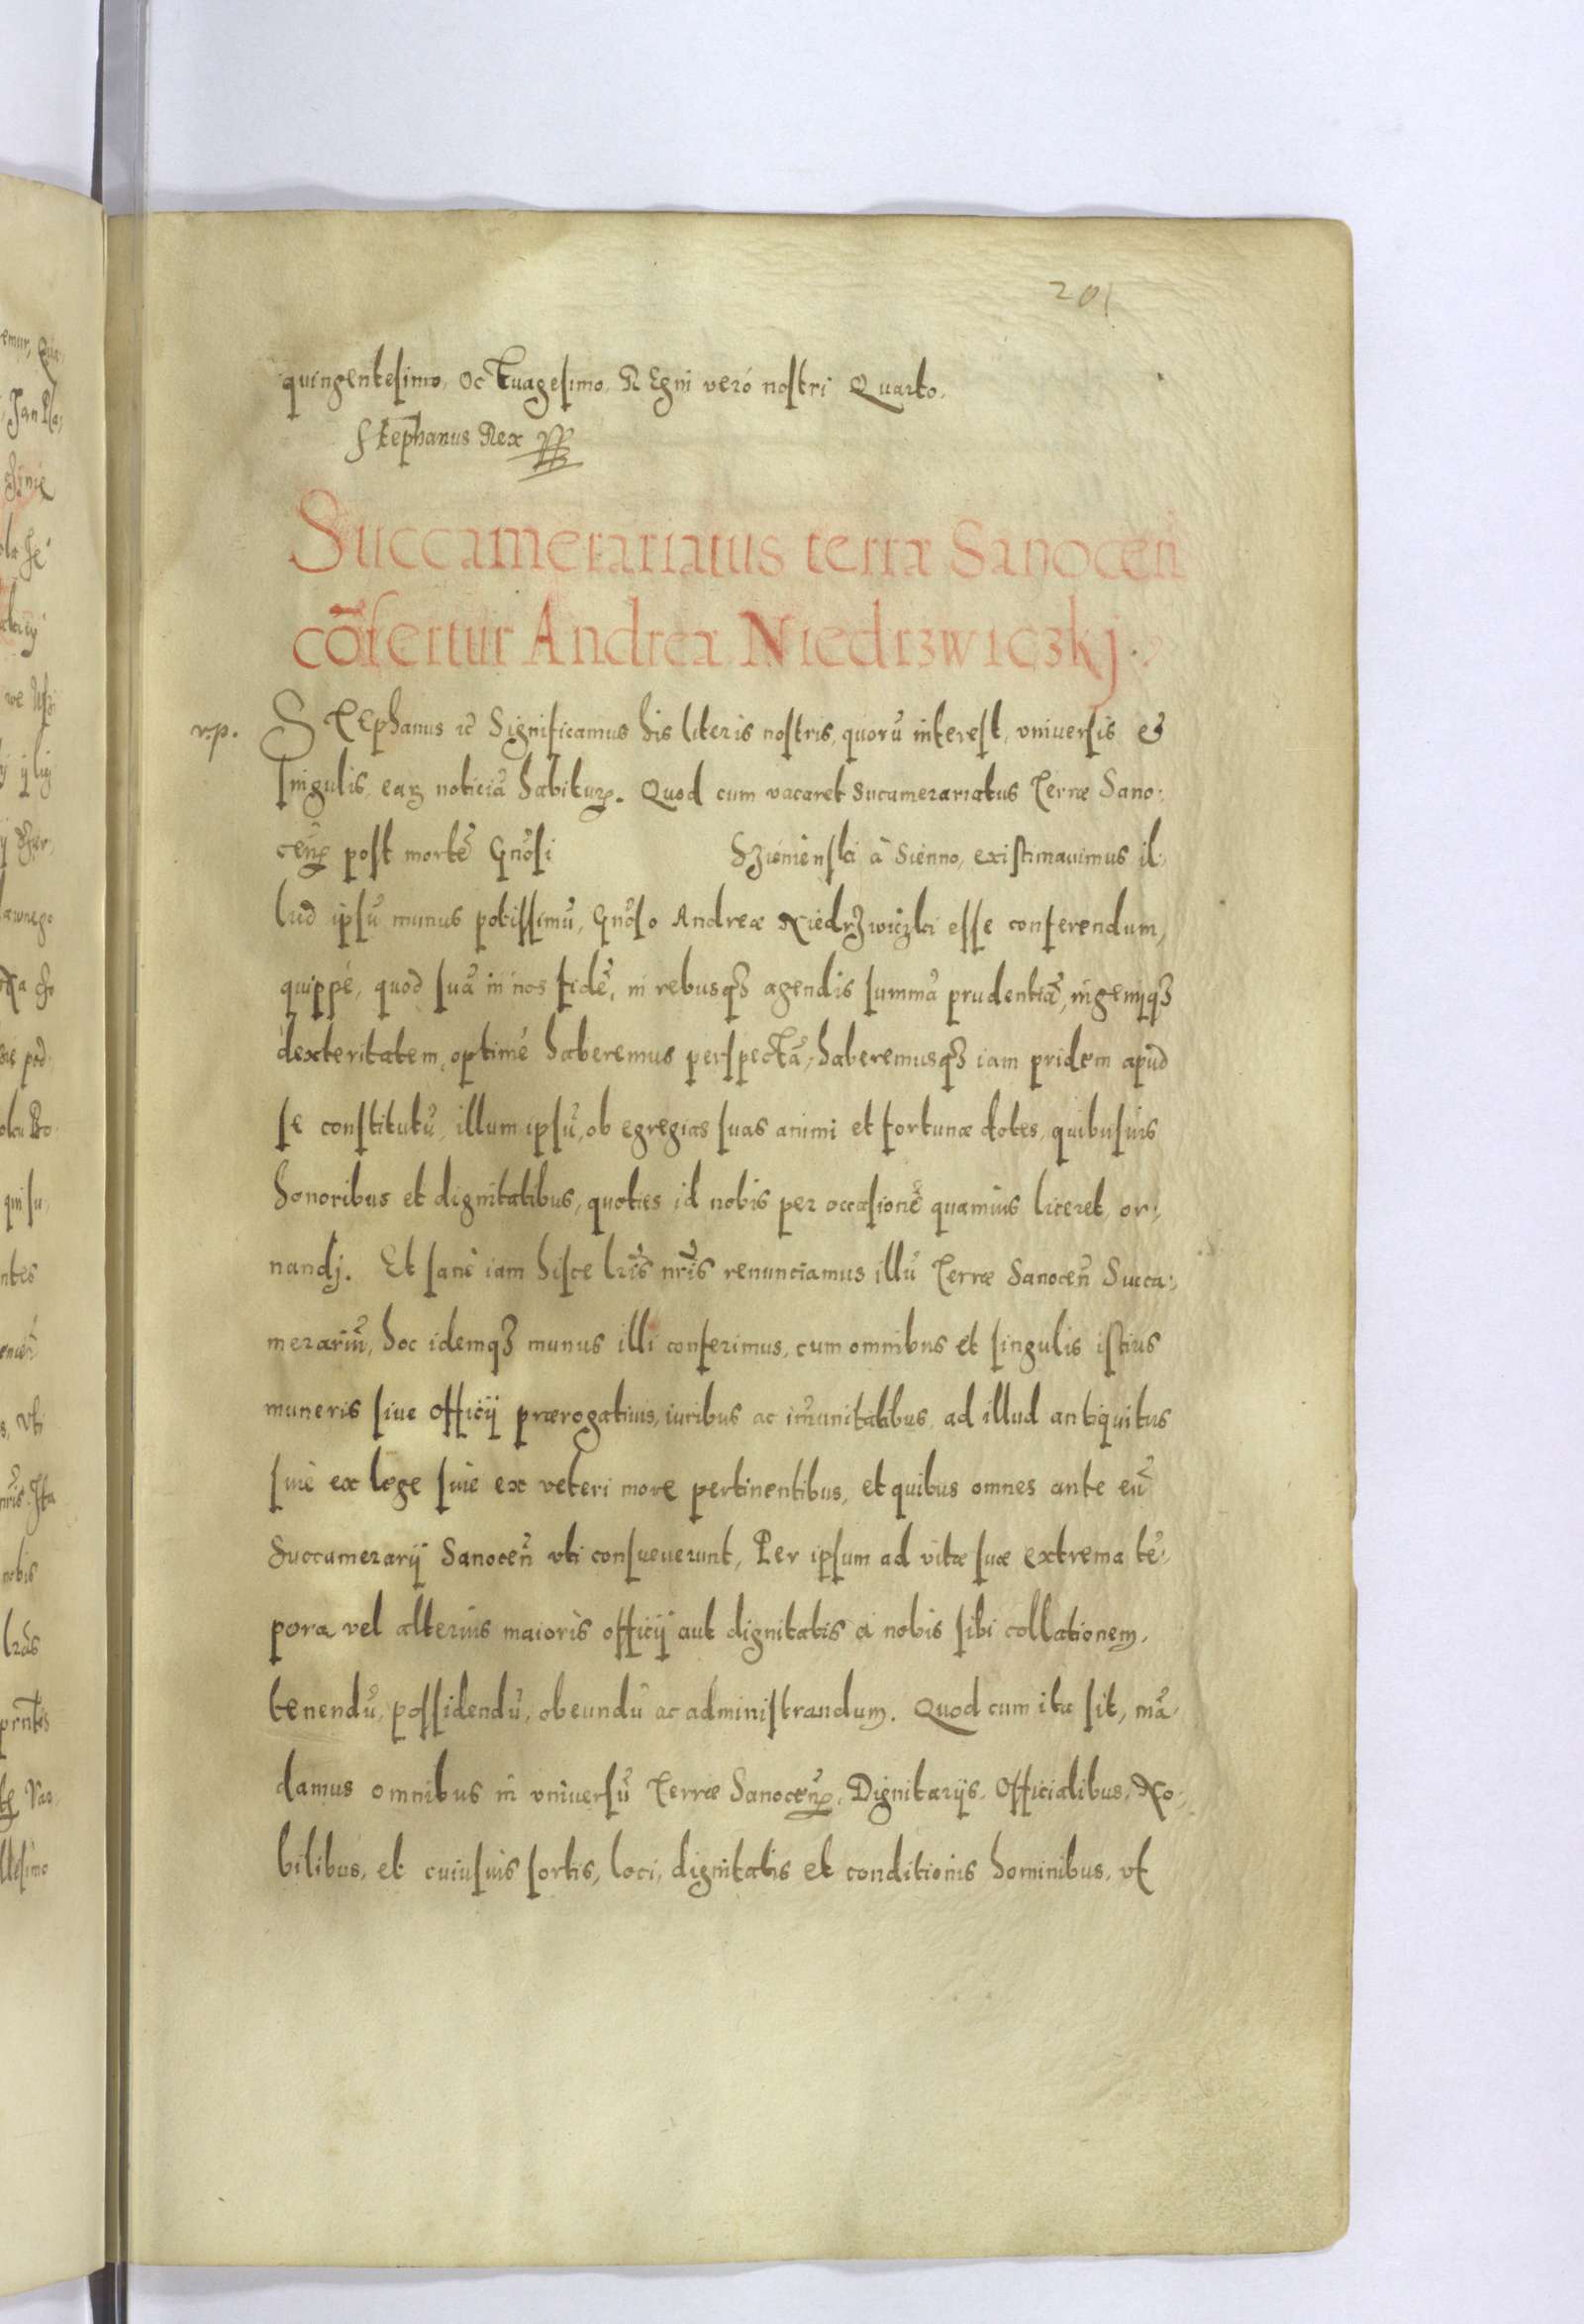 201
quingentesimo, Octuagesimo, REgni verò nostri Quarto.
Stephanus Rex
Succamerariatus terræ Sanoceñ
cõfertur Andreæ Niedrzwiczkj.
v.p.
STEphanus ꝛc̃ Significamus his literis nostris, quorũ interest, vniuersis &
singulis earꝫ noticiã habituꝝ. Quod cum vacaret Sucamerariatus Terræ Sano:
ceñ post mortẽ Gñosi Szienienski à Sienno, existimauimus il:
lud ipsũ munus potissimũ, Gñoso Andreæ Niedrzwiczki esse conferendum,
quippe, quod suã in nos fidẽ, in rebusqꝫ agendis summã prudentiã, ingenijqꝫ
dexteritatem, optimè haberemus perspectã, haberemusqꝫ iam pridem apud
se constitutũ, illum ipsũ, ob egregias suas animi et fortunæ dotes, quibusuis
honoribus et dignitatibus, quoties id nobis per occasionẽ quamuis liceret, or:
nandj. Et sanè iam hisce lris̃ nris̃ renunciamus illũ Terræ Sanoceñ Succa:
merariũ, hoc idemqꝫ munus illi conferimus, cum omnibus et singulis istius
muneris siue officij prærogatiuis, iuribus ac im̃unitatibus ad illud antiquitus
siue ex lege siue ex veteri more pertinentibus, et quibus omnes ante eũ
Succamerarij Sanoceñ vti consueuerunt, Per ipsum ad vitæ suæ extrema tẽ:
pora vel alterius maioris officij aut dignitatis à nobis sibi collationem,
tenendũ, possidendũ, obeundũ ac administrandum. Quod cum ita sit, mã:
damus omnibus in vniuersũ Terræ Sanoceñ, Dignitarijs, Officialibus, No:
bilibus, et cuiusuis sortis, loci, dignitatis et conditionis hominibus, vt